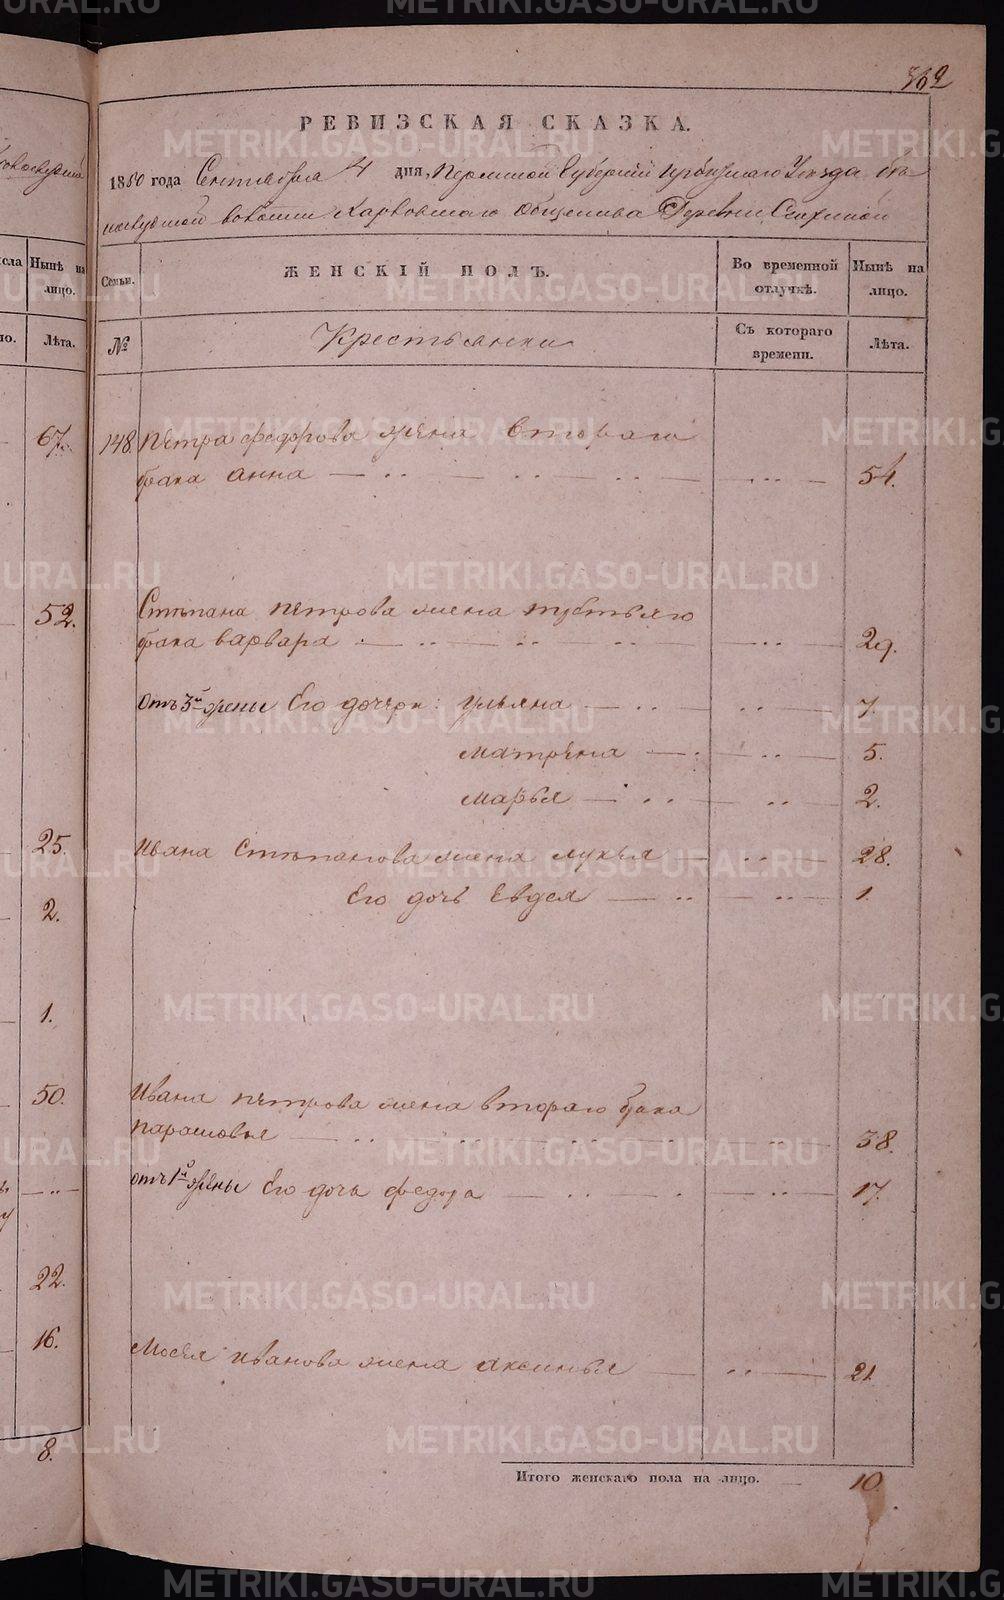 362
РЕВИЗСКАЯ СКАЗКА.
1850 года Сентября 4 дня, Пермской Губернии Ирбитскаго Уезда
волости Харловскаго общества Деревни
ЖЕНСКІЙ ПОЛЪ.
Во временной отлучкѣ.
Нынѣ на лицо.
Семьи.
№
Крестьянки
Съ котораго времени.
Лѣта.
сла
Нынѣ на лицо.
Лѣта.
67.
148. Петра Федорова жена втораго
брака Анна 54.
52.
Степана Петрова жена третьяго
брака Варвара 29.
отъ 3й жены Его дочери: Ульяна 7.
Матрена 5.
Марья 2.
25.
Ивана Степанова жена Лукья 28.
2.
Его дочь Евдея 1.
1.
50.
Ивана Петрова жена втораго брака
Парасковья 38.
отъ 1й жены Его дочь Федора 17.
22.
16.
Мосея Иванова жена Аксинья 21.
8.
Итого женскаго пола на лицо. 10.
METRIKI.GASO-URAL.RU